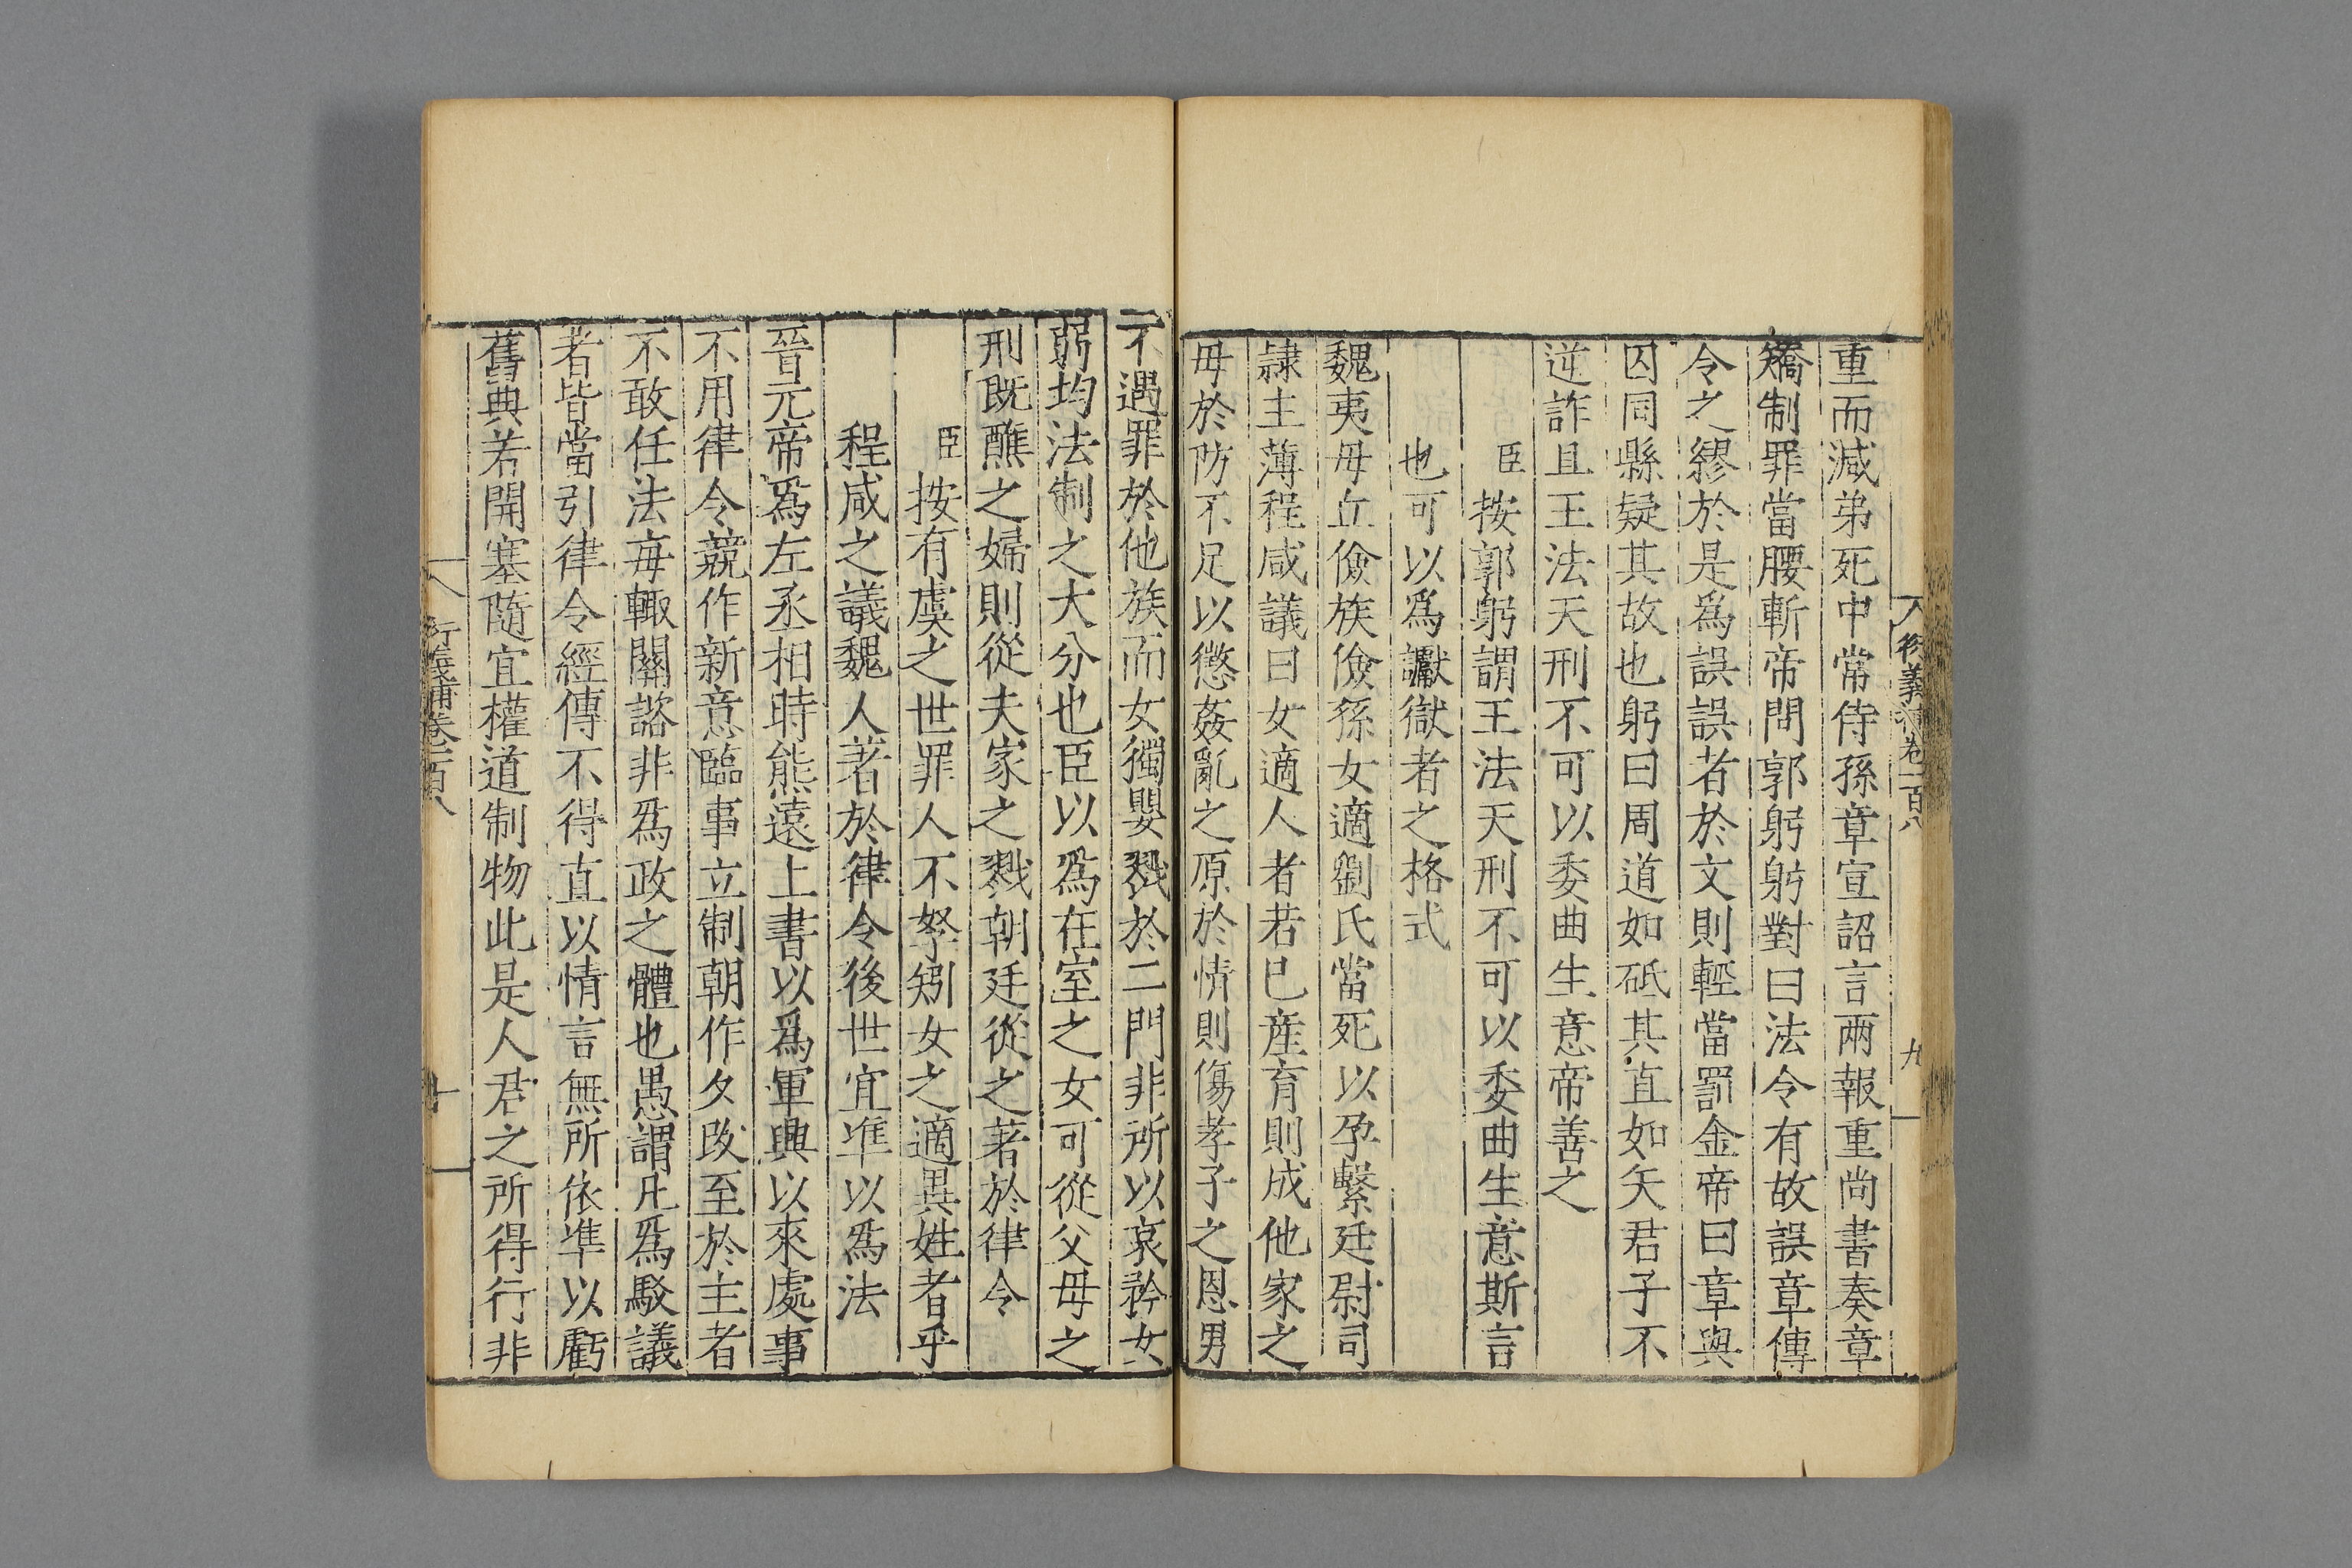 衍義補卷一百八 九
重而減弟死中常侍孫章宣詔言兩報重尚書奏章
矯制罪當腰斬帝問郭躬躬對曰法令有故誤章傳
令之繆於是爲誤誤者於文則輕當罰金帝曰章與
囚同縣疑其故也躬曰周道如砥其直如矢君子不
逆詐且王法天刑不可以委曲生意帝善之
臣按郭躬謂王法天刑不可以委曲生意斯言
也可以爲讞獄者之格式
魏夷毋丘儉族儉孫女適劉氏當死以孕繫廷尉司
隷主薄程咸議曰女適人者若已産育則成他家之
毋於防不足以懲姦亂之原於情則傷孝子之恩男
不遇罪於他族而女獨嬰戮於二門非所以哀矜女
弱均法制之大分也臣以爲在室之女可從父母之
刑既醮之婦則從夫家之戮朝廷從之著於律令
臣按有虞之世罪人不孥矧女之適異姓者乎
程咸之議魏人著於律令後世宜準以爲法
晉元帝爲左丞相時熊遠上書以爲軍興以來處事
不用律令競作新意臨事立制朝作夕改至於主者
不敢任法每輙關諮非爲政之體也愚謂凡爲駁議
者皆當引律令經傳不得直以情言無所依準以虧
舊典若開塞隨宜權道制物此是人君之所得行非
衍義補卷一百八 十